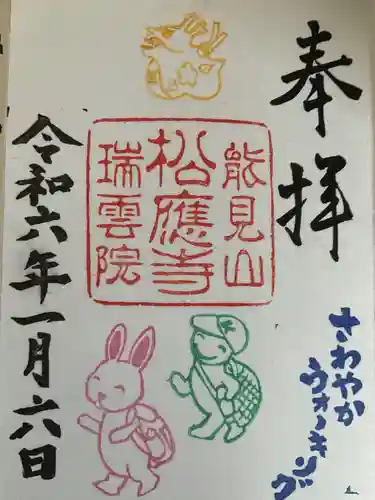 奉拝
能見山
松應寺
瑞雲院
さわやか
ウォーキング
令和六年一月六日